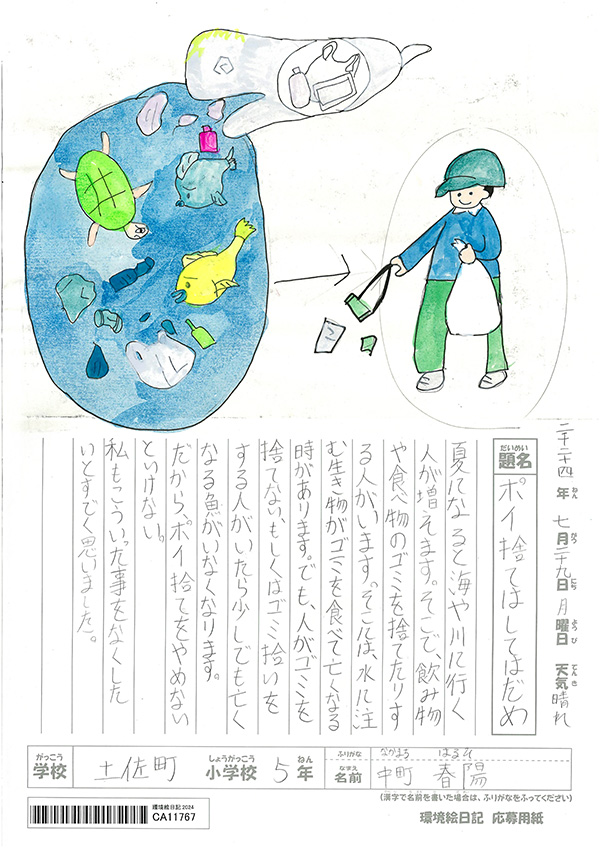 二千二十四年 七月二十九日 月曜日 天気 晴れ
ねん がつ にち ようび てんき
だいめい
題名 ポイ捨てはしてはだめ
夏になると海や川に行く
人が増えます。そこで、飲み物
や食べ物のゴミを捨てたりす
る人がいます。そこには、水に注
む生き物がゴミを食べて亡くなる
時があります。でも、人がゴミを
捨てない、もしくはゴミ拾いを
する人がいたら少しでも亡く
なる魚がいなくなります。
だから、ポイ捨てをやめない
といけない。
私もこういった事をなくした
いとすごく思いました。
がっこう しょうがっこう ねん ふりがな なかまち はるひ
学校 土佐町 小学校 5年 なまえ 名前 中町 春陽
(漢字で名前を書いた場合は、ふりがなをふってください)
環境絵日記2024
CA11767
環境絵日記 応募用紙